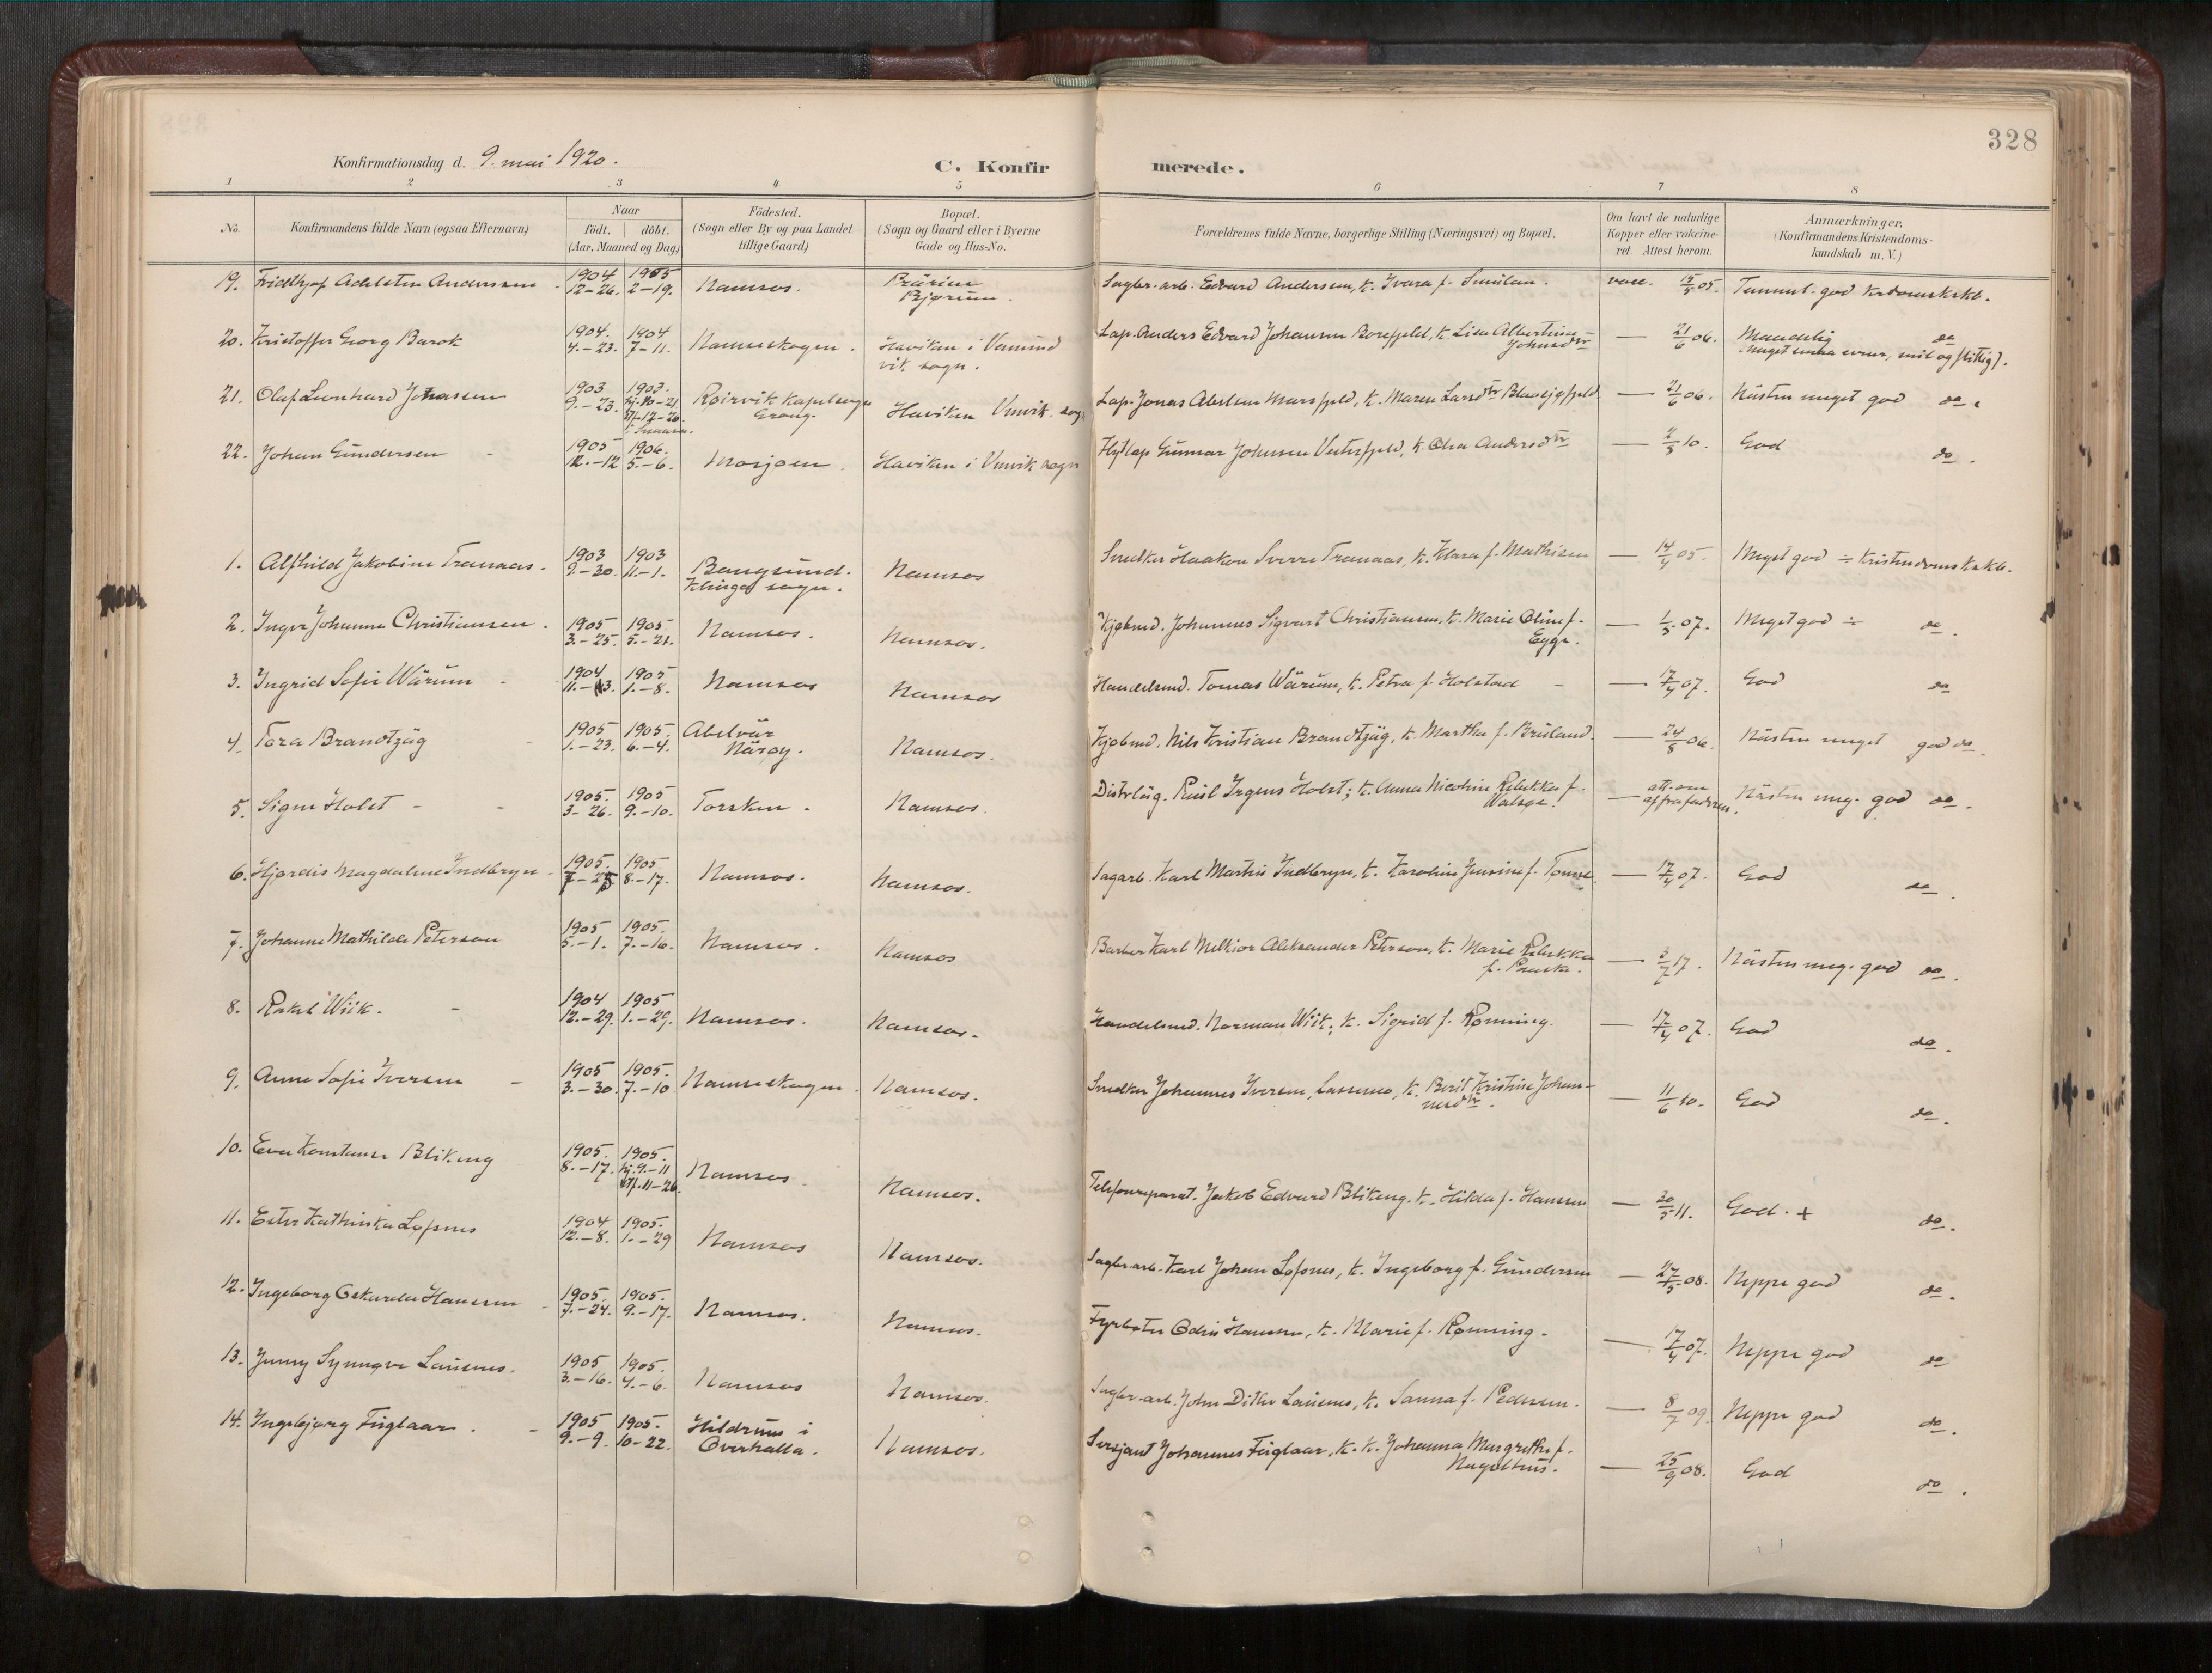 328
Konfirmationsdag d. 9. mai 1920.
C. Konfirmerede.
1 2 3 4 5 6 7 8
No.
Konfirmandens fulde Navn (ogsaa Efternavn)
Naar
født. døbt.
(Aar, Maaned og Dag)
Fødested.
(Sogn eller By og paa Landet
tillige Gaard)
Bopæl.
(Sogn og Gaard eller i Byerne
Gade og Hus-No.
Forældrenes fulde Navne, borgerlige Stilling (Næringsvei) og Bopæl.
Om havt de naturlige
Kopper eller vakcine-
ret. Attest herom.
Anmærkninger.
(Konfirmandens Kristendoms-
kundskab m. V.)
19. Fridthjof Adelsten Andersen 1904 12-26. 1905 2-19. Namsos. Prärien Bjørum. Sagbr.arb. Edvard Andersen, k. Ivara f. vacc. 15/5 05. Temmel. god
20. Kristoffer Georg Barok 1904. 4.-23. 1904 7-11. Namsskogen. Haviken i Vemund
vik sogn. Lap. Anders Edvard Johansen Borgfjeld, k. Lisa Albertine
Johnsdtr — 21/6 06. Maadelig do
(meget svake evner, snil og flittig).
21. Olaf Leonhard Jonassen 1903 9.-23. 1903. hj. 10-21 st/f. 12-20 Røirvik kapelsogn
Grong. Haviken Vmvik. sogn Lap. Jonas Abelsen Marsfjeld, k. Maren Larsdtr Blaasjøfjeld — 21/6 06. Nästen meget god do.
22. Johan Gundersen 1905 12.-12 1906. 5.-6. Mosjøen. Haviken i Vmvik sogn Flytlap Gunnar Johnsen Vestrefjeld, k. Elna Andersdtr — 10. God do.
1. Alfhild Jakobine Tranaas. 1903 9.-30. 1903 11.-1. Bangsund.
Klinga sogn. Namsos Smelter Haakon Sverre Tranaas, k. Klara f. Mathisen — 14/4 05. Meget god ÷ Kristendomskskb.
2. Inger Johanne Christiansen. 1905 3.-25. 1905 5.-21. Namsos. Namsos. Kjøbmd. Johannes Sigvart Christiansen, k. Marie Oline f.
Egge. — 1/5 07. Meget god ÷ do.
3. Ingrid Sofie Wärum 1904 11.-13. 1905 1.-8. Namsos Namsos Handelsmd. Tomas Wärum, k. Petra f. Holstad — 17/4 07. God do
4. Tora Brandtzäg 1905 1.-23. 1905. 6.-4. Abelvär
Näröy. Namsos. Kjøbmd. Nils Kristian Brandtzäg, k. Martha f. Brüland. — 24/8 06. Nästen meget god do.
5. Signe Holst 1905. 3-26. 1905 9.-10. Torsken. Namsos. Distrläg. Emil Irgens Holst; k. Anna Nicoline Rebekka f.
Walsøe. — att. om
fra faderen. Nästen meg. god do.
6. Hjørdis Magdalene Indbryn 1905. 7-25 1905 8.-17. Namsos. Namsos. Sagarb. Karl Martin Indbryn, k. Karoline Jensine f. — 17/4 07. God do.
7. Johanne Mathilde Peterson 1905 5.-1. 1905. 7.-16. Namsos. Namsos Barber Karl Melkior Aleksander Peterson, k. Marie Rebekka
f. — 3/7 17. Nästen meg. god do.
8. Rakel Wiik. 1904 12.-29. 1905 1.-29. Namsos. Namsos. Handelsmd. Norman Wiik, k. Sigrid f. Rønning. — 17/4 07. God do.
9. Anna Sofie Iversen 1905 3.-30. 1905. 7.-10 Namsskogen. Namsos. Smelter Johannes Iversen, Lassemo, k. Berit Kristine Johan-
nesdtr. — 11/6 10. God do.
10. Eva Konstanse Blikeng 1905. 8.-17. 1905. hj. 9.-11 st/f. 11-26. Namsos. Namsos. Telefonreparat. Jakob Edvard Blikeng. k. Hilda f. Hanssen — 20/5 11. God. + do.
11. Ester Kathinka Løfsnes 1904 12.-8. 1905. 1.-29 Namsos Namsos. Sagbr.arb. Karl Johan Løfsnes, k. Ingeborg f. Gundersen — 27/5 08. Neppe god do.
12. Ingeborg Oskarda Hanssen 1905. 7.-24. 1905. 9.-17. Namsos. Namsos. Fyrbøter Odin Hanssen, k. Marie f. Rønning. — 17/4 07. Neppe god do
13. Jenny Synnøve Lausnes. 1905 3.-16. 1905. 4.-6. Namsos Namsos. Sagbr.arb. John Ditlev Lausnes, k. Sanna f. Pedersen. — 8/7 09. Neppe god do.
14. Ingebjørg Fuglaar. 1905 9.-9. 1905. 10-22. Hildrum i
Overhalla. Namsos. Sersjant Johannes Fuglaar, k. k. Johanna Margrethe f.
Nagelhus. — 25/9 08. God do.